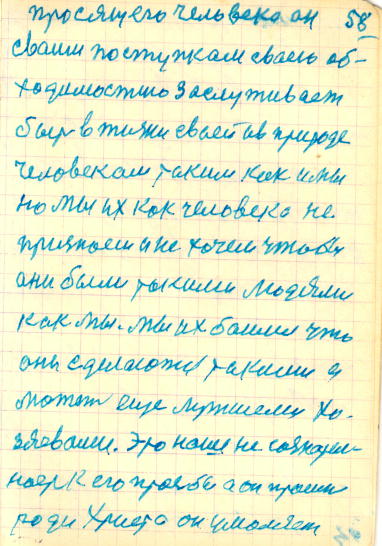 просящего человека он 58
своим поступкам своей об-
ходимостью заслуживает
быть в жизни своей и в природе
человекам таким как и мы
но мы их как человека не
признаем и не хочем чтобы
они были такими людьми
как мы. мы их боимся что
они сделаются такими а
может еще лучшеми хо-
зяевами. Это наше не
к его прозьбы а он просит
ради Христа он умоляет